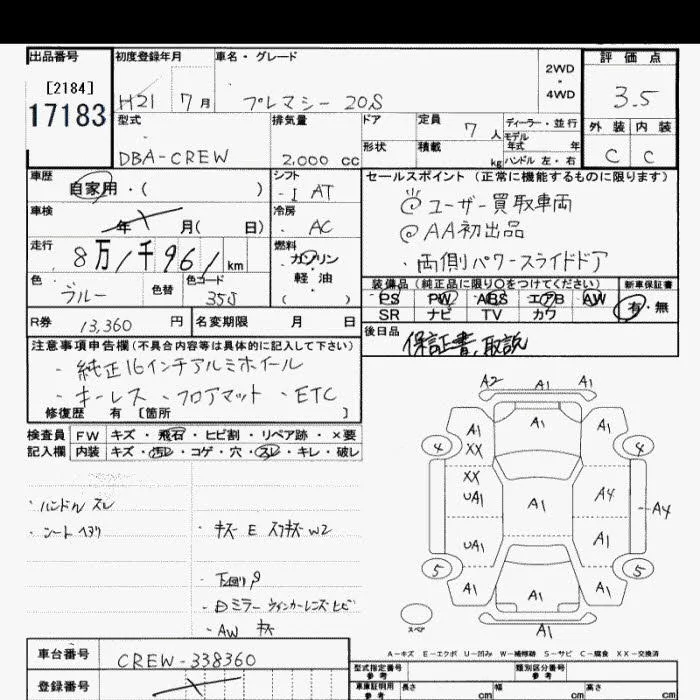 出品番号 初度登録年月 車名・グレード 2WD・4WD 評価点
[2184]
17183
H21 7月 プレマシー 20S 3.5
型式 排気量 ドア 定員 7人 ディーラー・並行 外装 内装
モデル年式 年
形状 積載 kg ハンドル 左・右
DBA-CREW 2,000 cc C C
車歴 シフト セールスポイント (正常に機能するものに限ります)
自家用・( ) I AT
ユーザー買取車両
車検 冷房
年 月( 日) AC
@AA初出品
走行 燃料
8万1千961km ガソリン・軽油( )
・両側パワースライドドア
色 色替 色コード
ブルー 35J
装備品(純正品に限り○をつけてください) 新車保証書
PS PW ABS エアB AW 有・無
SR ナビ TV カワ
R券 13,360円 名変期限 月 日
後日品 保証書、取説
注意事項申告欄(不具合内容等は具体的に記入して下さい)
・純正16インチアルミホイール
・キーレス ・フロアマット ・ETC
修復歴 有 [箇所 ]
検査員 FW キズ・飛石・ヒビ割・リペア跡・×要
記入欄 内装 キズ・汚レ・コゲ・穴・スレ・キレ・破レ
・ハンドル スレ
・シート ヘタリ
・キズ E スリキズ W2
・下回リ
ミラー ウインカーレンズ ヒビ
・AW キズ
A2 A1 A1
A1 A1 A1
4 XX 4
XX
UA1 A1 A4 A4
UA1 A1
5 5
A1 A1 A1
A1
スペア
A-キズ E-エクボ U-凹み W-補修跡 S-サビ C-腐食 XX-交換済
車台番号 CREW-338360
登録番号
型式指定番号 参考 類別区分番号 参考
車庫証明用 参考 長さ cm 幅 cm 高さ cm